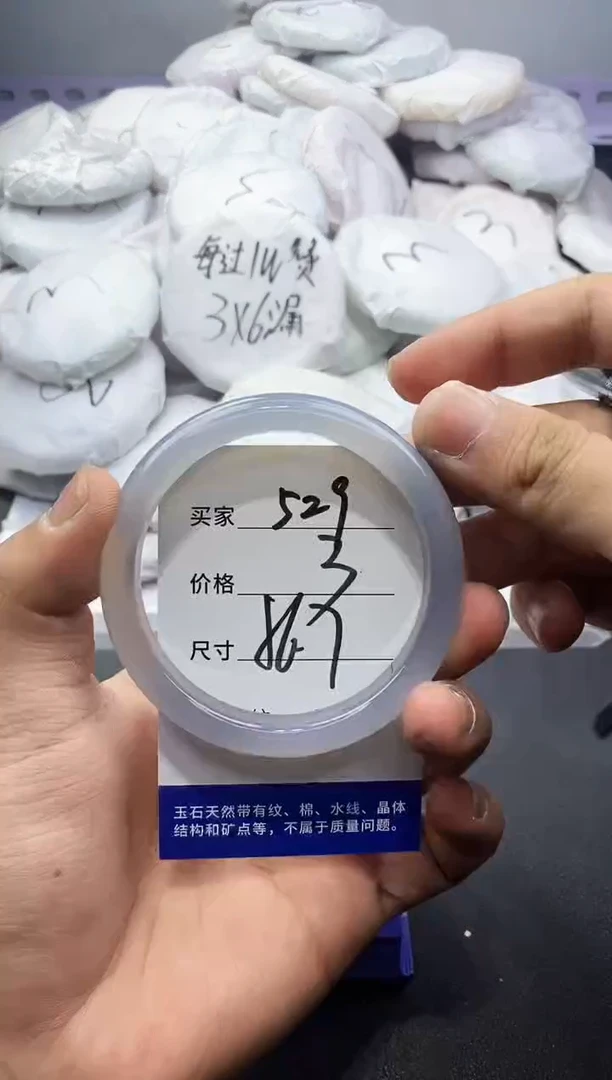 每过1W货
3X6漏
3
3
买家 529
价格 3
尺寸
玉石天然带有纹、棉、水线、晶体
结构和矿点等，不属于质量问题。